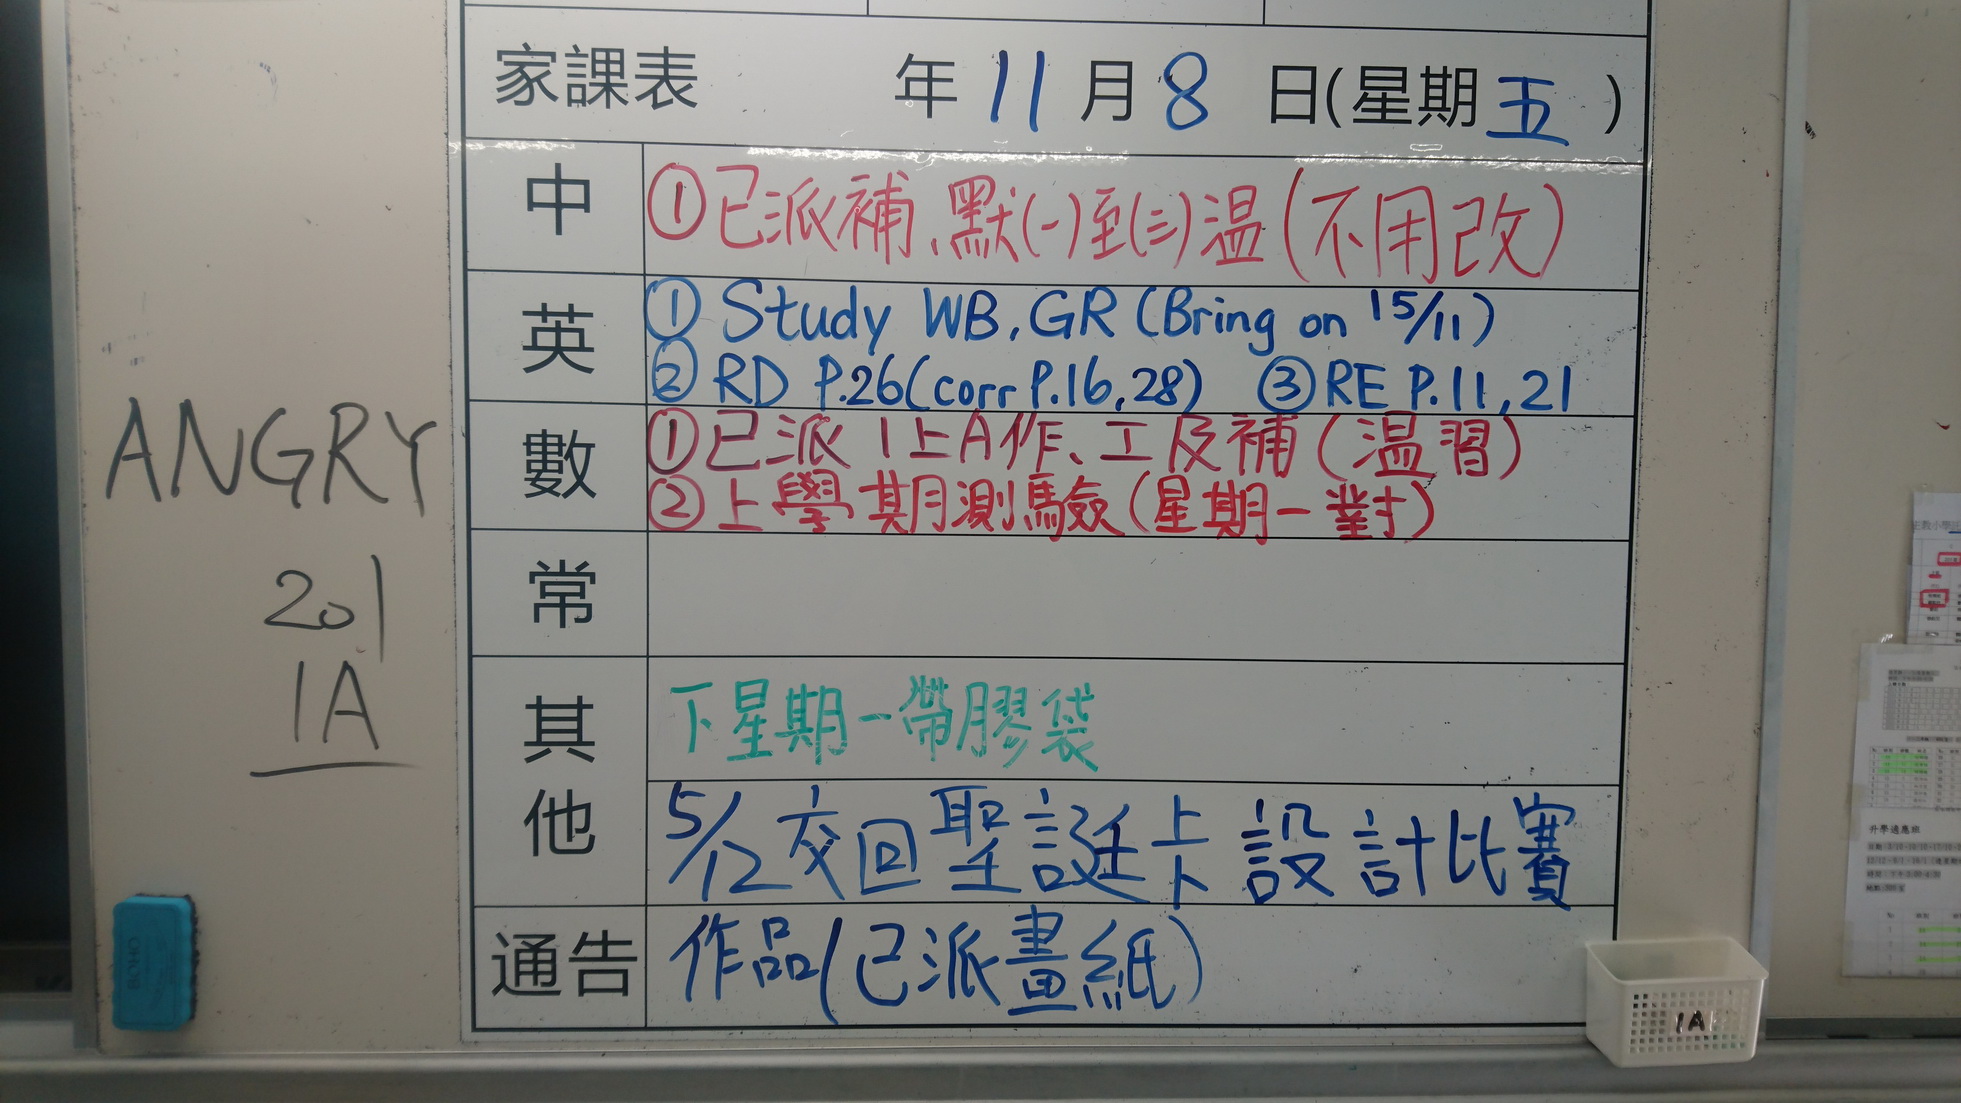 家課表 年 11 月 8 日(星期 五 )
中 ①已派補、默(一)至(三)温(不用改)
英 ① Study WB, GR (Bring on 15/11)
② RD P.26(corr P.16,28) ③ RE P.11,21
數 ①已派1上A作、工及補(温習)
②上學期測驗(星期一對)
常
其他 下星期一帶膠袋
5/12交回聖誕卡設計比賽
通告 作品(已派畫紙)
ANGRY
201
1A
1A
升學適應班